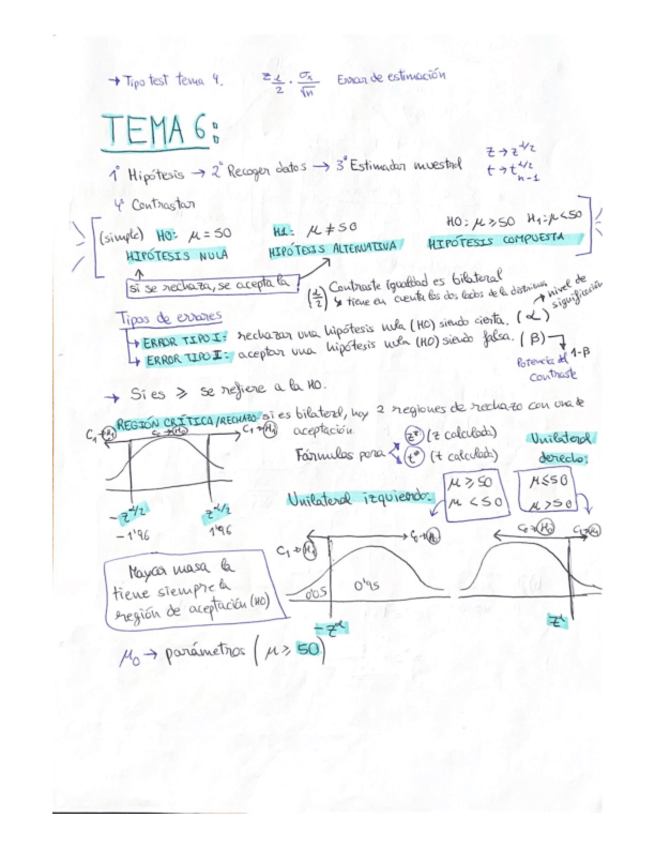 → Tipo test tema 4. z α/2 · σx/√n Error de estimación
TEMA 6:
1º Hipótesis → 2º Recoger datos → 3º Estimador muestral
z → z α/2
t → t α/2 n-1
4º Contrastar
(simple) H0: μ = 50 H1: μ ≠ 50 H0: μ ≥ 50 H1: μ < 50
HIPÓTESIS NULA HIPÓTESIS ALTERNATIVA HIPÓTESIS COMPUESTA
si se rechaza, se acepta la
(α/2) Contraste igualdad es bilateral
↳ tiene en cuenta los dos lados de la
nivel de significación
Tipos de errores
→ ERROR TIPO I: rechazar una hipótesis nula (H0) siendo cierta. (α)
→ ERROR TIPO II: aceptar una hipótesis nula (H0) siendo falsa. (β)
Potencia del contraste 1-β
→ Si es ≥ se refiere a la H0.
REGIÓN CRÍTICA/RECHAZO si es bilateral, hay 2 regiones de rechazo con una de
aceptación
C1→H1 C0→H0 C1→H1
Fórmulas para z* (z calculada)
t* (t calculada)
Unilateral derecho:
-z α/2 z α/2
-1'96 1'96
Unilateral izquierdo:
μ ≥ 50
μ < 50
μ ≤ 50
μ > 50
C1→H1 C0→H0
C0→H0 C1→H1
0'05 0'95
-z α
z α
Mayor masa la
tiene siempre la
región de aceptación (H0)
μ0 → parámetros (μ ≥ 50)